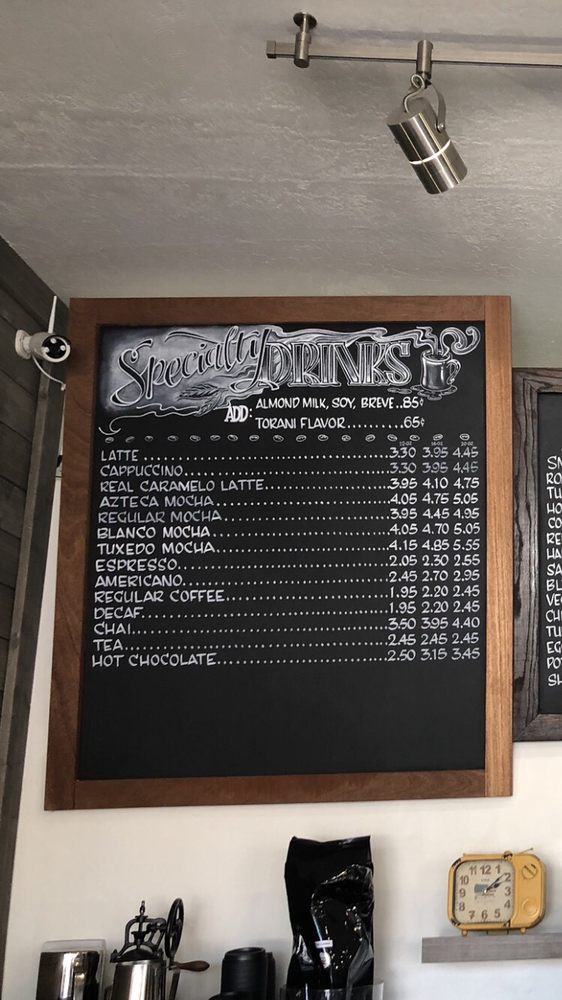 Specialty DRINKS
ADD: ALMOND MILK, SOY, BREVE..85¢
TORANI FLAVOR.........65¢
12 OZ 16 OZ 20 OZ
LATTE 3.30 3.95 4.45
CAPPUCCINO 3.30 3.95 4.45
REAL CARAMELO LATTE 3.95 4.10 4.75
AZTECA MOCHA 4.05 4.75 5.05
REGULAR MOCHA 3.95 4.45 4.95
BLANCO MOCHA 4.05 4.70 5.05
TUXEDO MOCHA 4.15 4.85 5.55
ESPRESSO 2.05 2.30 2.55
AMERICANO 2.45 2.70 2.95
REGULAR COFFEE 1.95 2.20 2.45
DECAF 1.95 2.20 2.45
CHAI 3.50 3.95 4.40
TEA 2.45 2.45 2.45
HOT CHOCOLATE 2.50 3.15 3.45
12 1 2 3 4 5 6 7 8 9 10 11